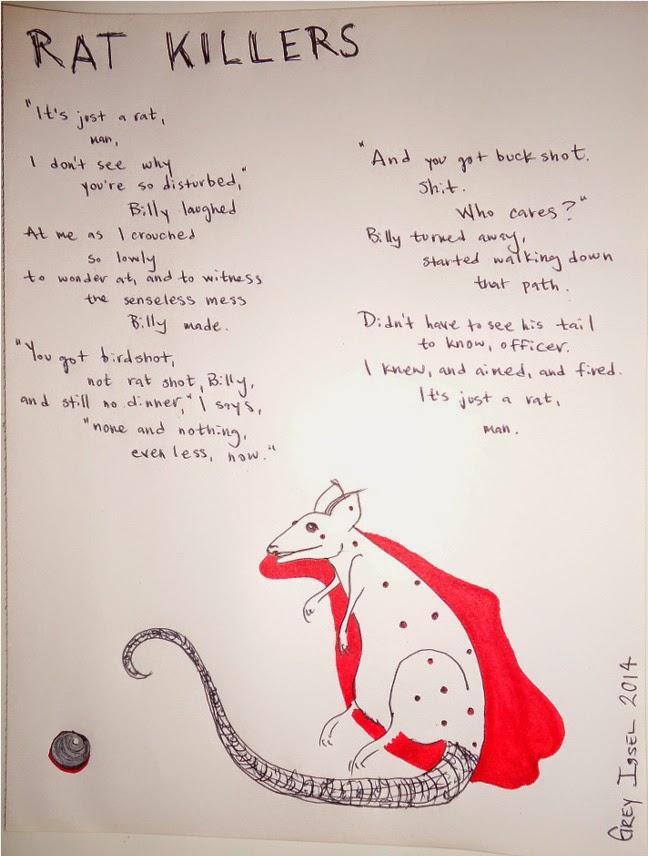 RAT KILLERS
"It's just a rat,
man,
I don't see why
you're so disturbed,"
Billy laughed
At me as I crouched
so lowly
to wonder at, and to witness
the senseless mess
Billy made.
"You got birdshot,
not rat shot, Billy,
and still no dinner," I says,
"none and nothing,
even less, now."
"And you got buckshot.
Shit.
Who cares?"
Billy turned away,
started walking down
that path.
Didn't have to see his tail
to know, officer.
I knew, and aimed, and fired.
It's just a rat,
man.
GREY ISSEL 2014